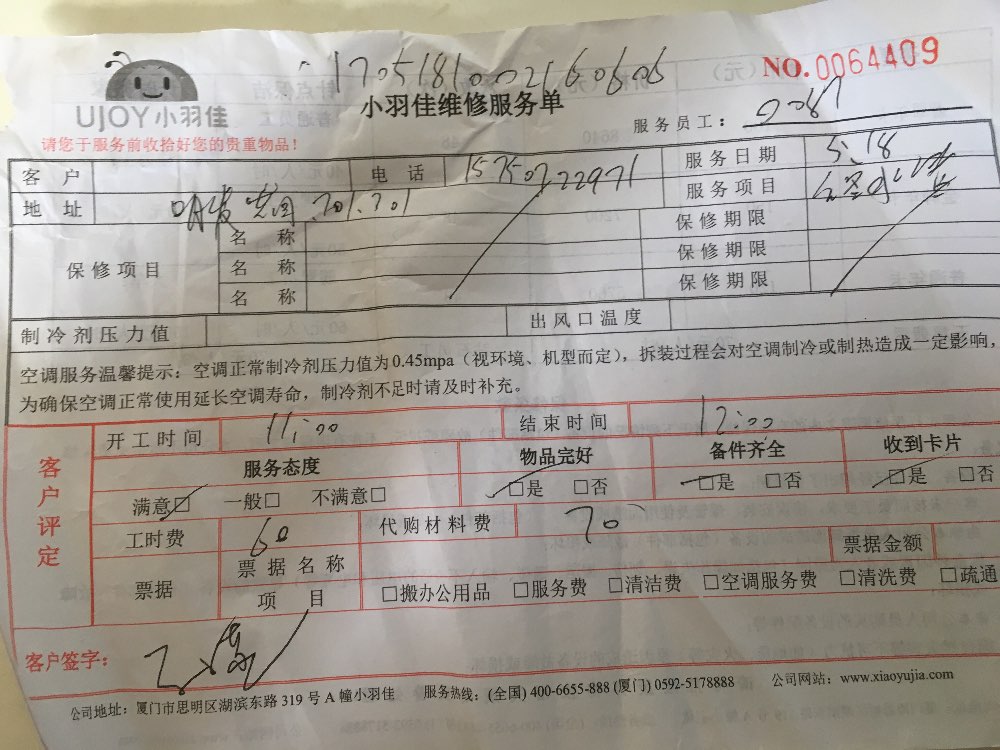 1705181002160606
NO.0064409
UJOY小羽佳
小羽佳维修服务单
服务员工：0087
请您于服务前收拾好您的贵重物品！
客户 电话 15750722971 服务日期 5.18
地址 701.701 服务项目
保修项目 名称 保修期限
名称 保修期限
名称 保修期限
制冷剂压力值 出风口温度
空调服务温馨提示：空调正常制冷剂压力值为0.45mpa（视环境、机型而定），拆装过程会对空调制冷或制热造成一定影响，
为确保空调正常使用延长空调寿命，制冷剂不足时请及时补充。
客户评定
开工时间 11:00 结束时间 12:00
服务态度 物品完好 备件齐全 收到卡片
满意□ 一般□ 不满意□ □是 □否 □是 □否 □是 □否
工时费 60 代购材料费 70
票据 票据名称 票据金额
项目 □搬办公用品 □服务费 □清洁费 □空调服务费 □清洗费 □疏通
客户签字：
公司地址：厦门市思明区湖滨东路 319 号 A 幢小羽佳 服务热线：(全国) 400-6655-888 (厦门) 0592-5178888 公司网站：www.xiaoyujia.com